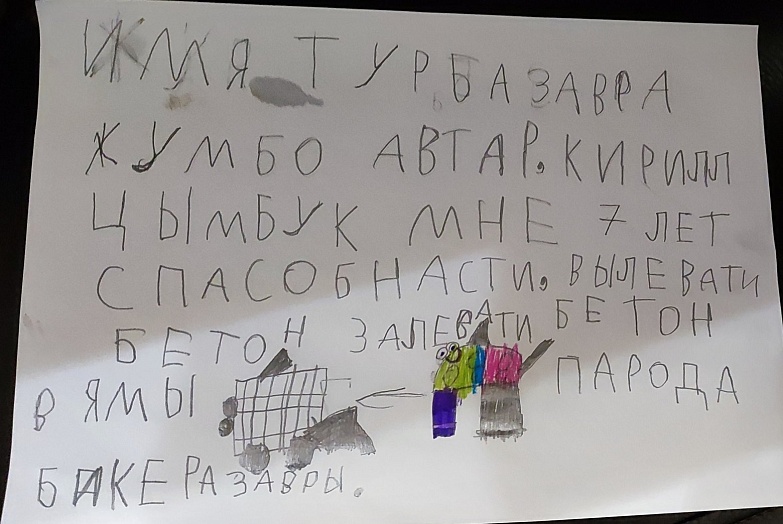 ИМЯ ТУРБАЗАВРА
ЖУМБО АВТАР. КИРИЛЛ
ЦЫМБУК МНЕ 7 ЛЕТ
СПАСОБНАСТИ. ВЫЛЕВАТИ
БЕТОН ЗАЛЕВАТИ БЕТОН
В ЯМЫ ПАРОДА
БИКЕРАЗАВРЫ.